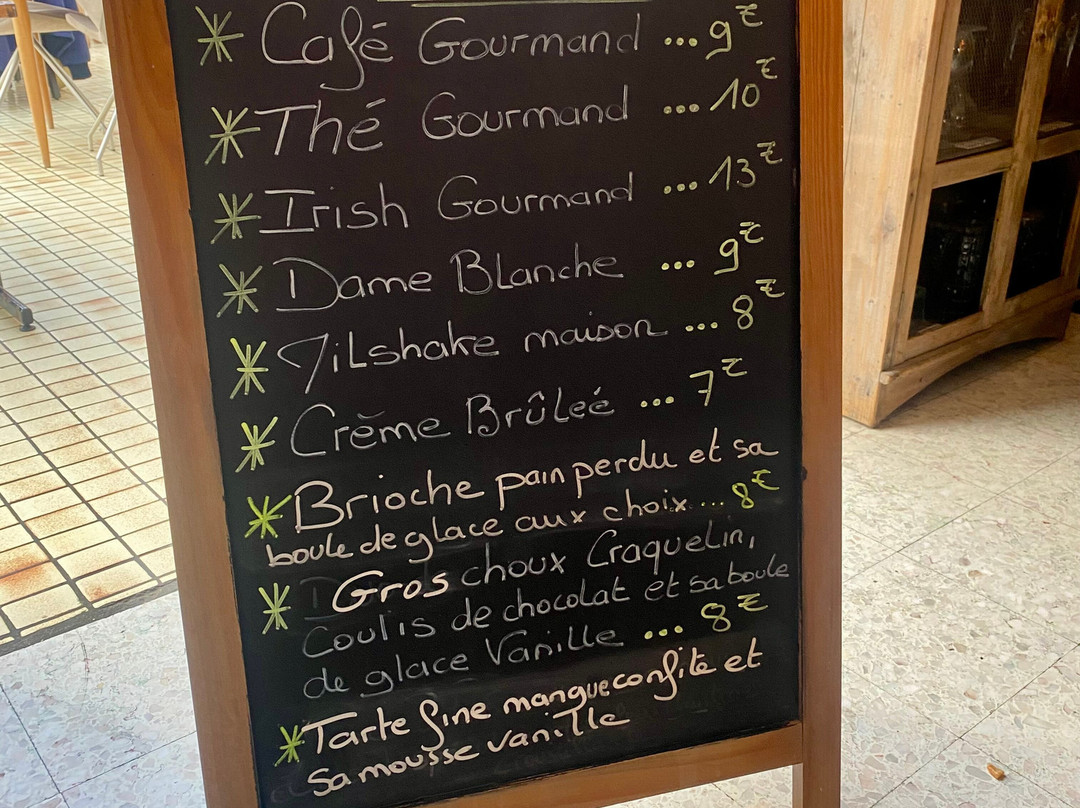 * Café Gourmand ... 9€
* Thé Gourmand ... 10€
* Irish Gourmand ... 13€
* Dame Blanche ... 9€
* Milshake maison ... 8€
* Crème Brûleé ... 7€
* Brioche pain perdu et sa
boule de glace aux choix ... 8€
* Gros choux Craquelin,
Coulis de chocolat et sa boule
de glace Vanille ... 8€
* Tarte fine mangue confite et
Sa mousse vanille